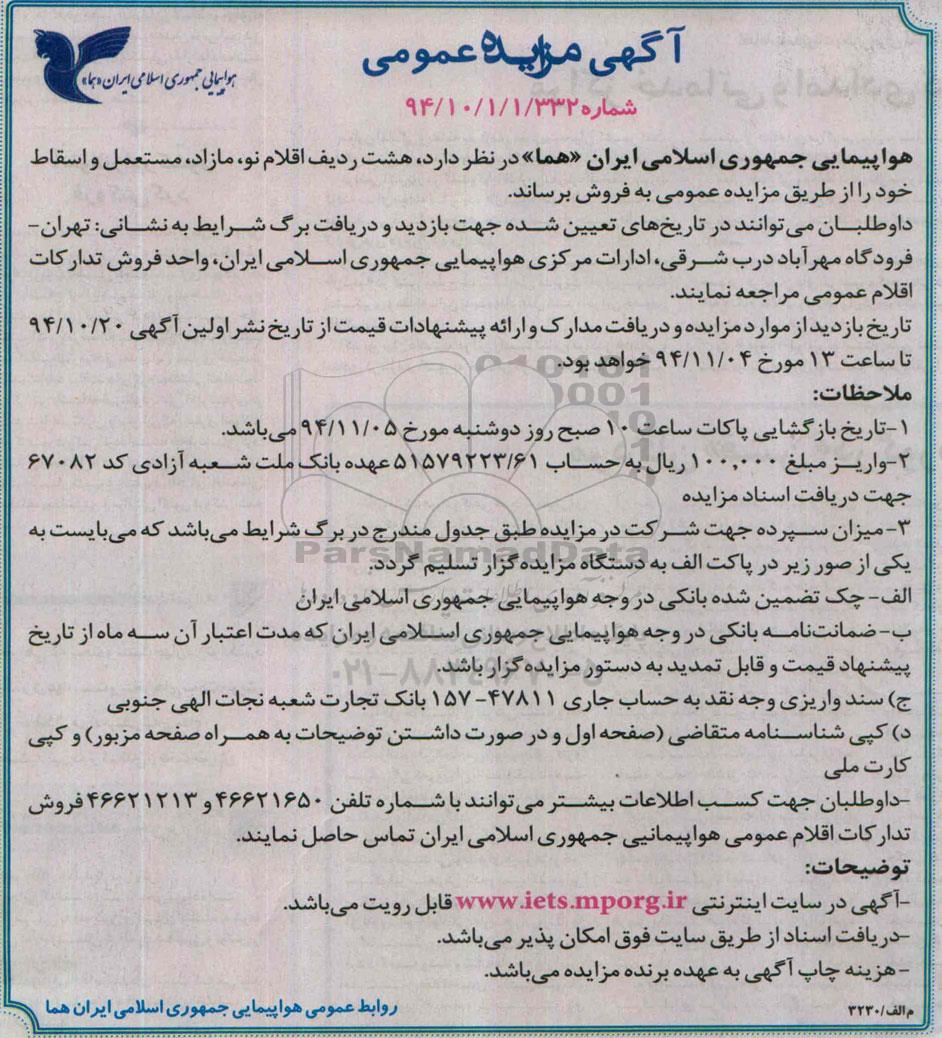 آگهی مزایده عمومی
هواپیمایی جمهوری اسلامی ایران «هما»
شماره ۹۴/۱۰/۱/۱/۳۳۲
هواپیمایی جمهوری اسلامی ایران «هما» در نظر دارد، هشت ردیف اقلام نو، مازاد، مستعمل و اسقاط
خود را از طریق مزایده عمومی به فروش برساند.
داوطلبان می‌توانند در تاریخ‌های تعیین شده جهت بازدید و دریافت برگ شرایط به نشانی: تهران-
فرودگاه مهرآباد درب شرقی، ادارات مرکزی هواپیمایی جمهوری اسلامی ایران، واحد فروش تدارکات
اقلام عمومی مراجعه نمایند.
تاریخ بازدید از موارد مزایده و دریافت مدارک و ارائه پیشنهادات قیمت از تاریخ نشر اولین آگهی ۹۴/۱۰/۲۰
تا ساعت ۱۳ مورخ ۹۴/۱۱/۰۴ خواهد بود.
ملاحظات:
۱-تاریخ بازگشایی پاکات ساعت ۱۰ صبح روز دوشنبه مورخ ۹۴/۱۱/۰۵ می‌باشد.
۲-واریز مبلغ ۱۰۰,۰۰۰ ریال به حساب ۵۱۵۷۹۲۲۳/۶۱ عهده بانک ملت شعبه آزادی کد ۶۷۰۸۲
جهت دریافت اسناد مزایده
۳-میزان سپرده جهت شرکت در مزایده طبق جدول مندرج در برگ شرایط می‌باشد که می‌بایست به
یکی از صور زیر در پاکت الف به دستگاه مزایده‌گزار تسلیم گردد.
الف- چک تضمین شده بانکی در وجه هواپیمایی جمهوری اسلامی ایران
ب- ضمانت‌نامه بانکی در وجه هواپیمایی جمهوری اسلامی ایران که مدت اعتبار آن سه ماه از تاریخ
پیشنهاد قیمت و قابل تمدید به دستور مزایده‌گزار باشد.
ج) سند واریزی وجه نقد به حساب جاری ۴۷۸۱۱-۱۵۷ بانک تجارت شعبه نجات الهی جنوبی
د) کپی شناسنامه متقاضی (صفحه اول و در صورت داشتن توضیحات به همراه صفحه مزبور) و کپی
کارت ملی
-داوطلبان جهت کسب اطلاعات بیشتر می‌توانند با شماره تلفن ۴۶۶۲۱۶۵۰ و ۴۶۶۲۱۲۱۳ فروش
تدارکات اقلام عمومی هواپیمانیی جمهوری اسلامی ایران تماس حاصل نمایند.
توضیحات:
-آگهی در سایت اینترنتی www.iets.mporg.ir قابل رویت می‌باشد.
-دریافت اسناد از طریق سایت فوق امکان پذیر می‌باشد.
-هزینه چاپ آگهی به عهده برنده مزایده می‌باشد.
روابط عمومی هواپیمایی جمهوری اسلامی ایران هما
م الف/۳۲۳۰
ParsNamadData